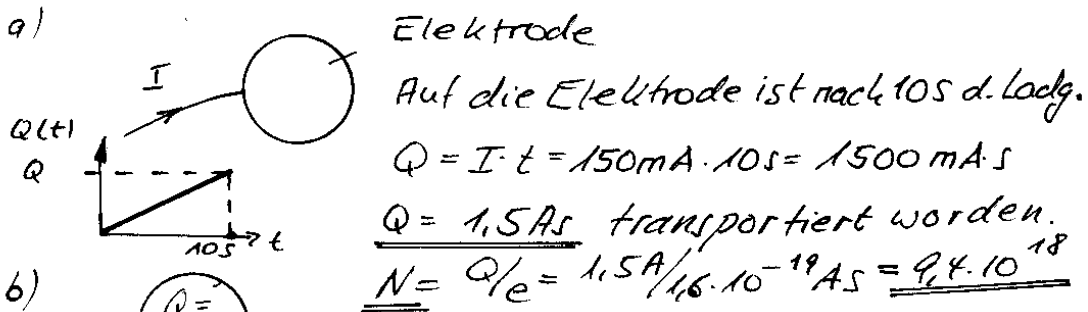 a)
Elektrode
I
Auf die Elektrode ist nach 10s d. Ladg.
Q(t)
Q
Q = I · t = 150mA · 10s = 1500 mA·s
Q = 1,5As transportiert worden.
10s t
b)
Q =
N = Q/e = 1,5A/1,6·10⁻¹⁹As = 9,4·10¹⁸